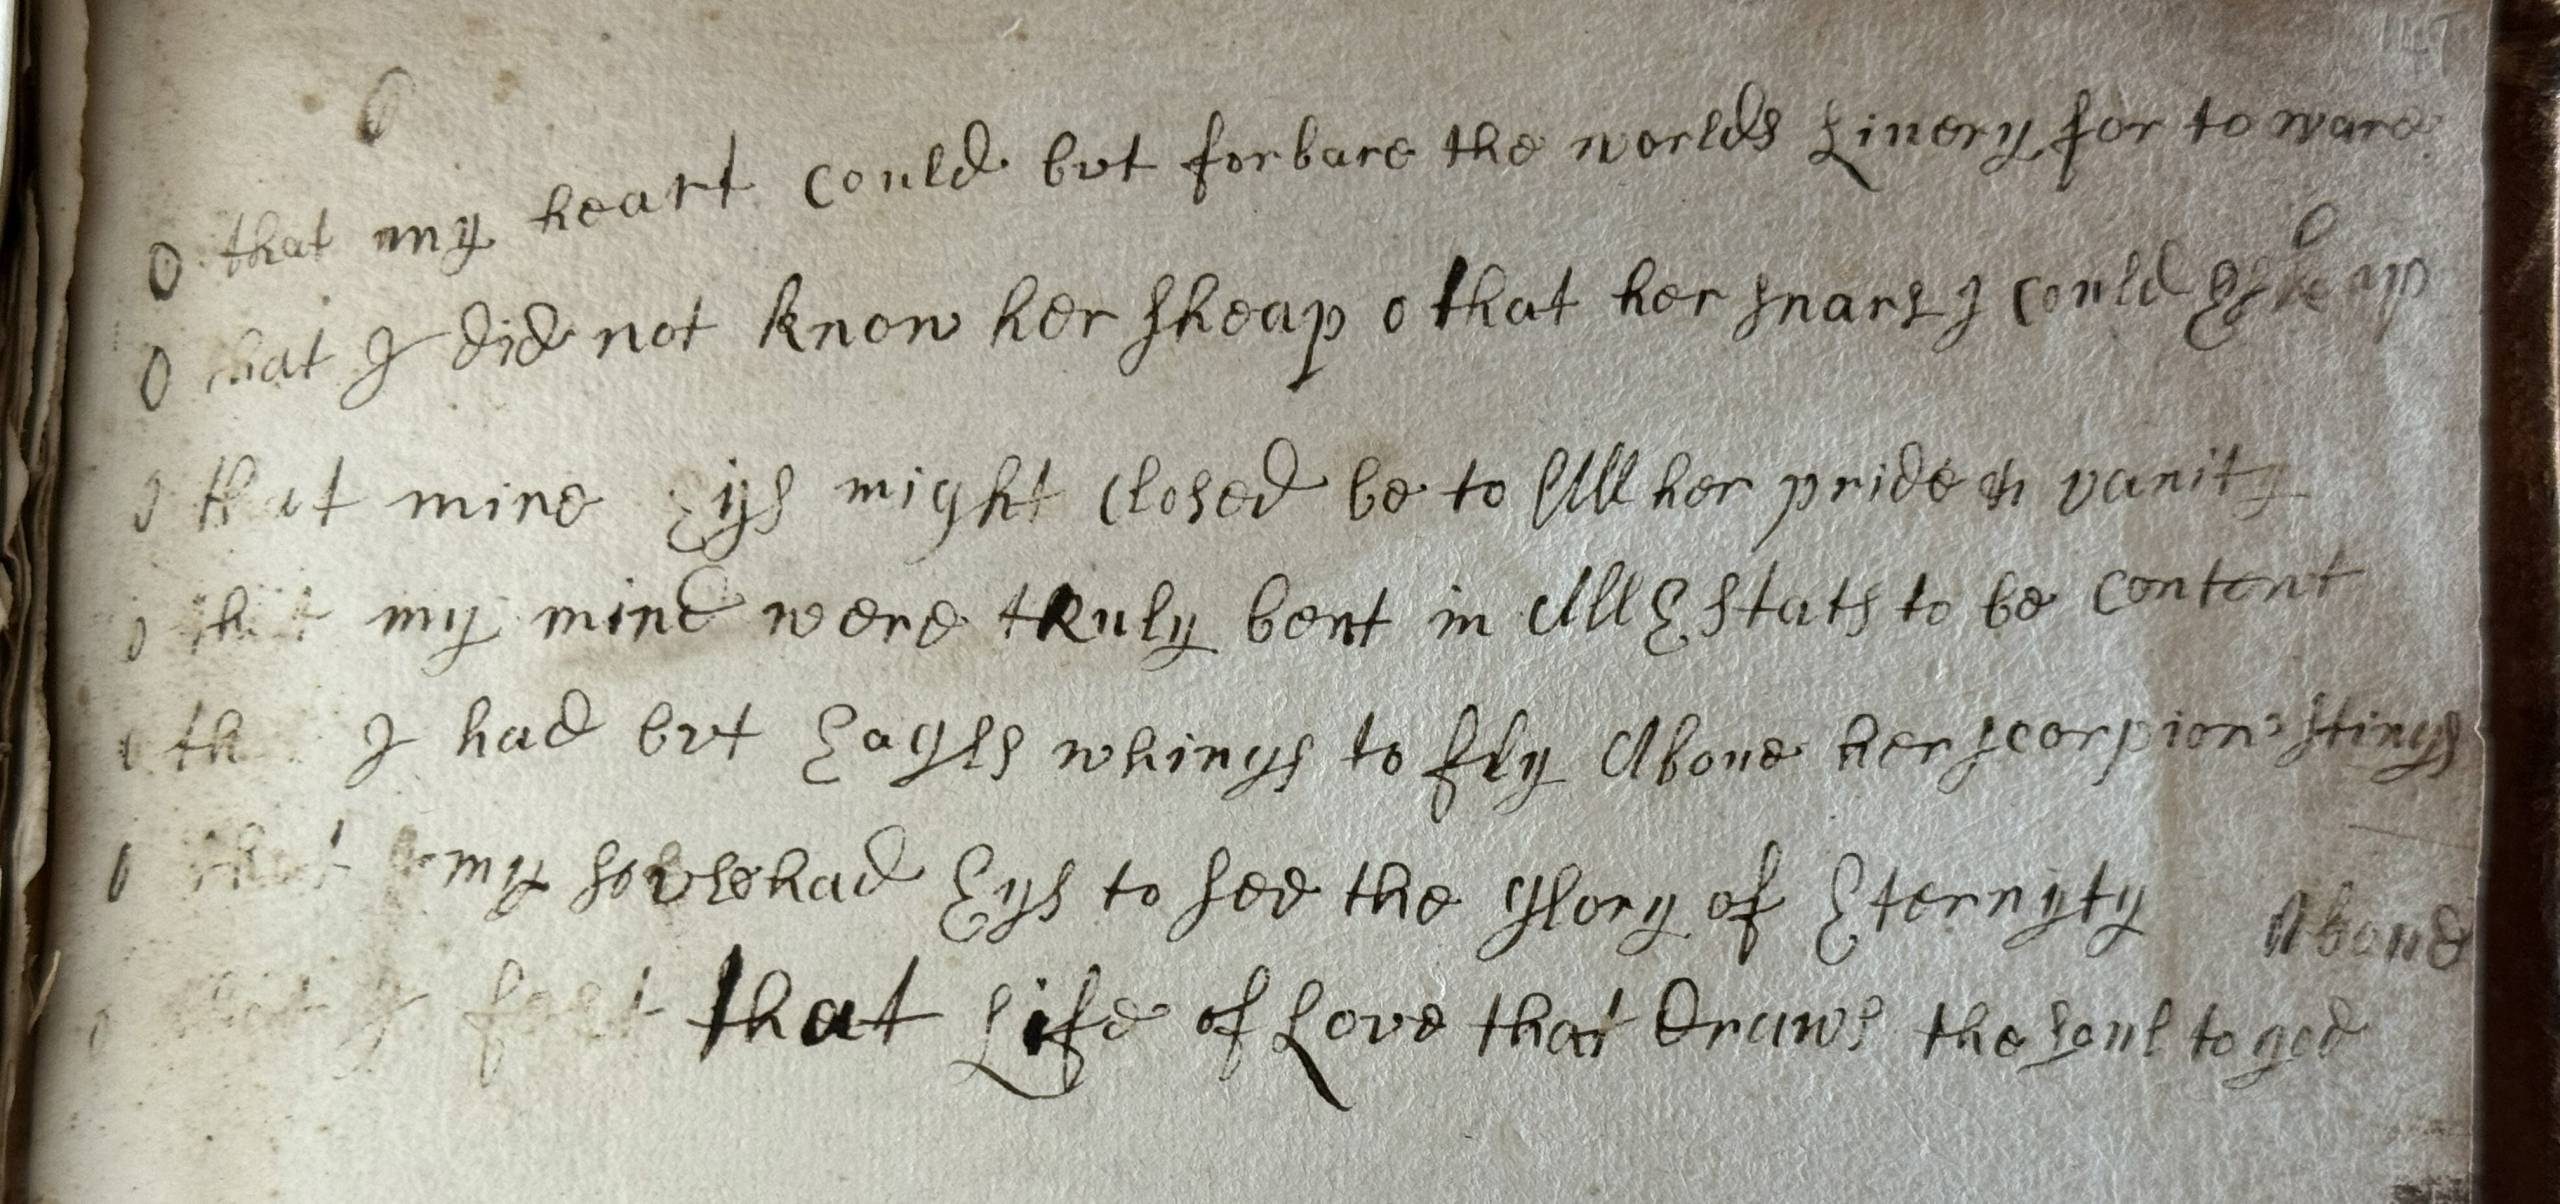 O that my heart could but forbare the worlds Livery for to ware
O that I did not know her sheap o that her snars I could Eskeap
O that mine Eys might closed be to All her pride & vanity
O that my mind were truly bent in All Estats to be content
O th I had but Eagls whings to fly Above her scorpions stings
O that my soule had Eys to see the glory of Eternyty
O that I felt that Life of Love that draws the soul to god Above